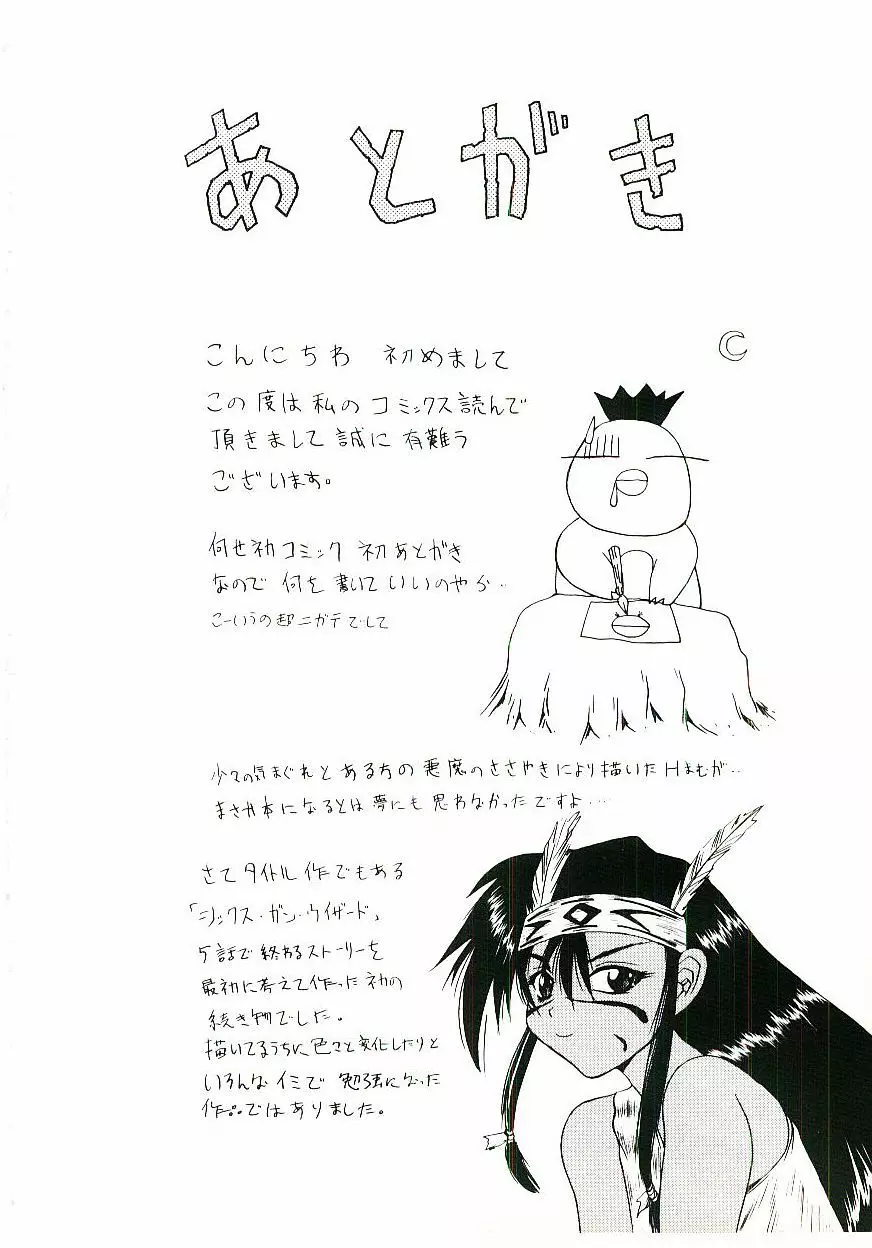 あとがき
こんにちわ 初めまして
この度は私のコミックス読んで
頂きまして誠に有難う
ございます。
何せ初コミック 初あとがき
なので何を書いていいのやら‥
こーいうの超ニガテでして
少々の気まぐれとある方の悪魔のささやきにより描いたHまもが‥
まさか本になるとは夢にも思わなかったですよ…
さてタイトル作でもある
「シックス・ガン・ウィザード」
5話で終わるストーリーを
最初に考えて作った初の
続き物でした。
描いてるうちに色々と変化したりと
いろんなイミで勉強になった
作品ではありました。